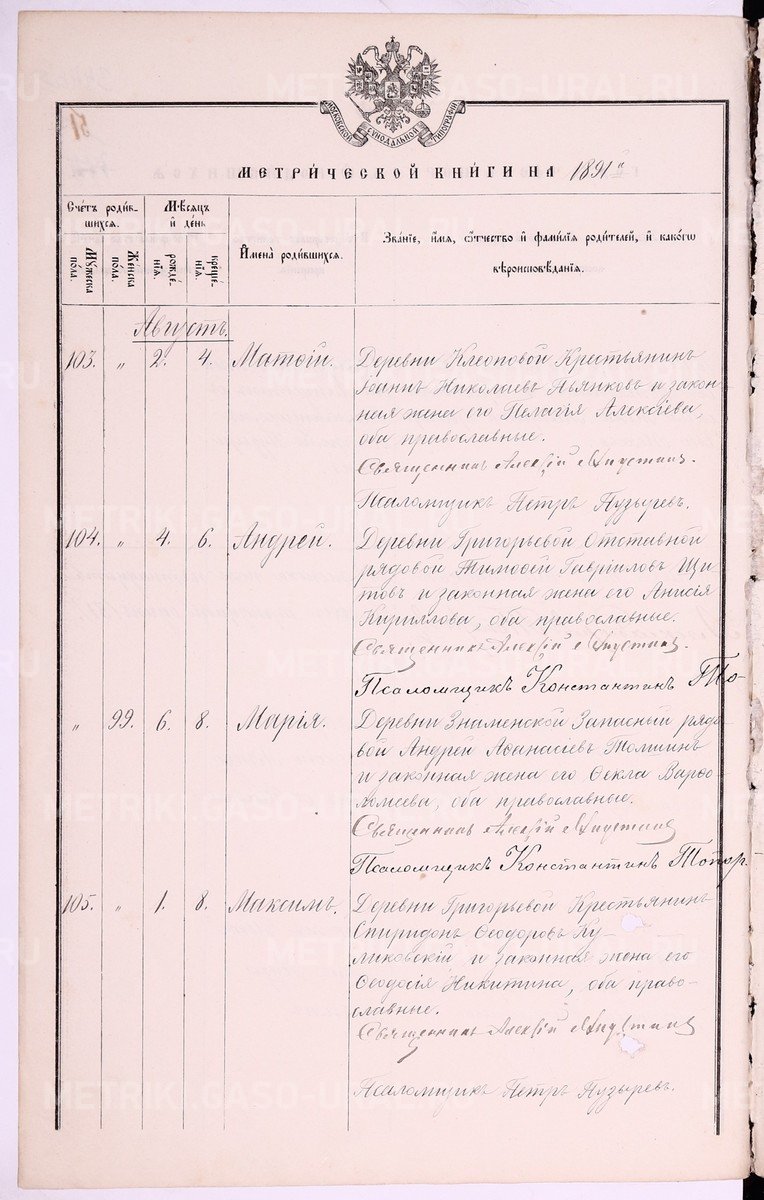 МОСКОВСКОЙ СѴНОДАЛЬНОЙ ТИПОГРАФІИ
51
МЕТРИ́ЧЕСКОЙ КНИ́ГИ НА 1891 й
Сче́тъ роди́в-
шихся.
Мѣ́сяцъ
и҆ де́нь
Му́жеска
по́ла.
Же́нска
по́ла.
рожде́-
нїѧ.
креще́-
нїѧ.
И҆мена̀ роди́вшихся.
Зва́нїе, и҆́мя, ѻ҆́тчество и҆ фами́лїя роди́телей, и҆ како́гѡ
вѣроисповѣ́данїя.
Августъ.
103. " 2. 4. Матѳій. Деревни Клеоповой Крестьянинъ
Іоаннъ Николаевъ и закон-
ная жена его Пелагія Алексіева,
оба православные.
Священникъ Алексій
Псаломщикъ Петръ Пузыревъ.
104. " 4. 6. Андрей. Деревни Григорьевой Отставной
рядовой Тимоѳій Гавріиловъ Щи-
товъ и законная жена его Анисія
Кириллова, оба православные.
Священникъ Алексій
Псаломщикъ Константинъ То-
" 99. 6. 8. Марія. Деревни Знаменской Запасный рядо-
вой Андрей Аѳанасіевъ Томшинъ
и законная жена его Ѳекла Варѳо-
ломеева, оба православные.
Священникъ Алексій
Псаломщикъ Константинъ Топор.
105. " 1. 8. Максимъ. Деревни Григорьевой Крестьянинъ
Спиридонъ Ѳеодоровъ Ку-
ликовскій и законная жена его
Ѳеодосія Никитина, оба право-
славные.
Священникъ Алексій
Псаломщикъ Петръ Пузыревъ.